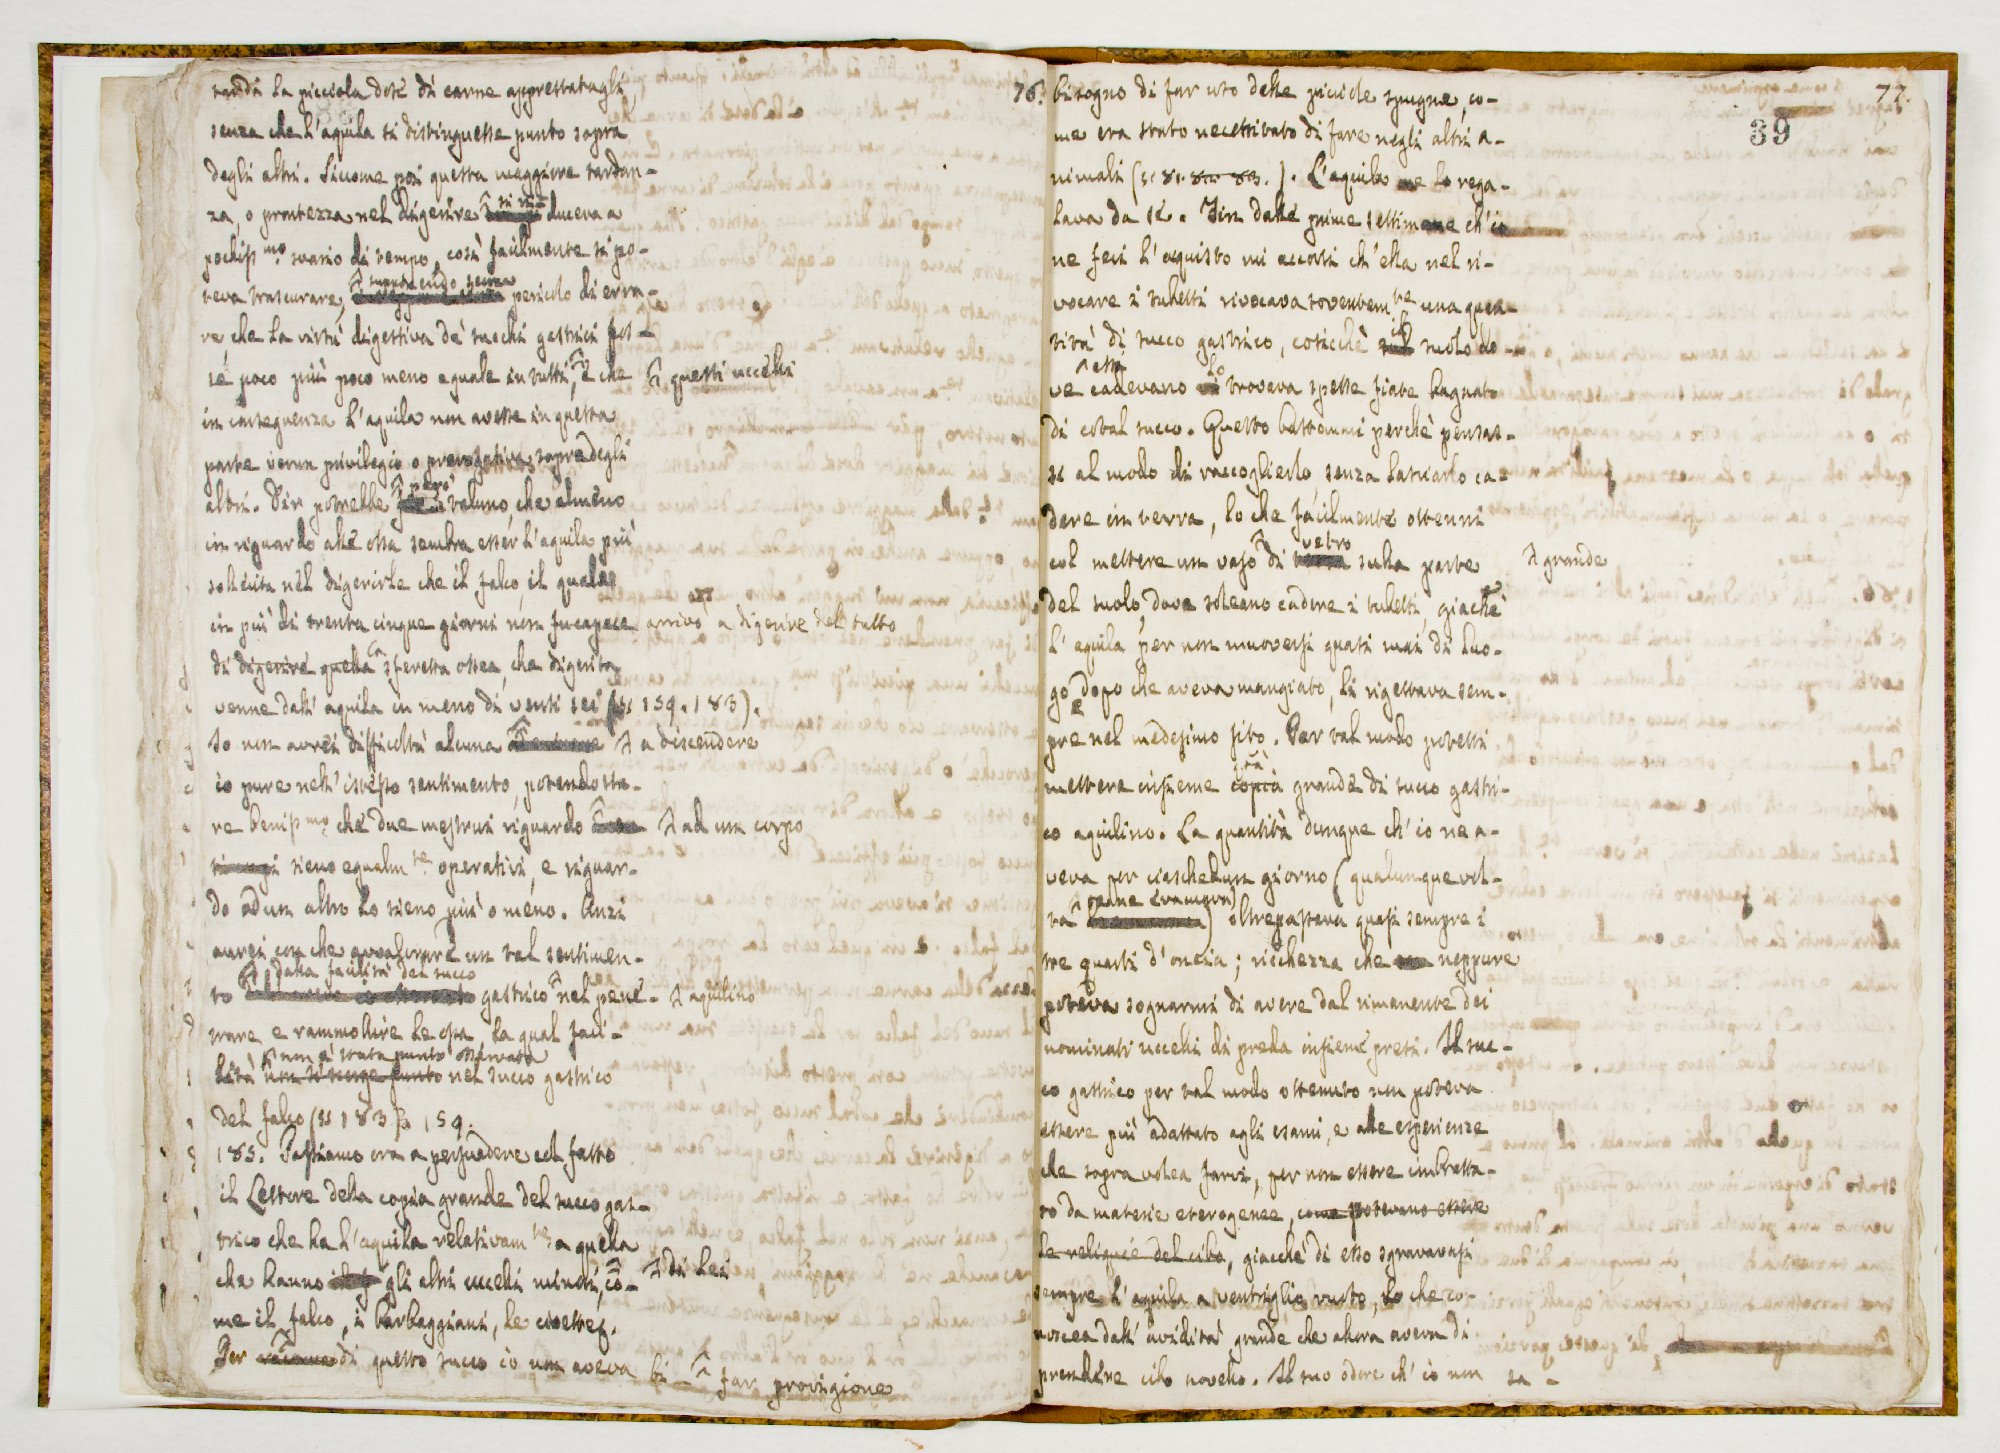 76.
randa la picciola dose di carne apprestatagli
senza che l'aquila si distinguesse punto sopra
degli altri. Siccome poi questa maggiore tardan-
za, o prontezza nel digerire si ri- duceva a
pochiss.mo svario di tempo, così facilmente si po-
teva trascurare, supponendo senza pericolo di erra-
re, che la virtù digestiva de' succhi gastrici fos-
se poco più poco meno eguale in tutti, e che questi uccelli
in conseguenza l'aquila non avesse in questa
parte verun privilegio o prerogativa sopra degli
altri. Dir potrebbe però taluno, che almeno
in riguardo alle ossa sembra esser l'aquila più
sollecita nel digerirle che il falco, il quale
in più di trenta cinque giorni non fu capace arrivò a digerire del tutto
di digerire quella sferetta ossea, che digerita
venne dall'aquila in meno di venti sei (§§ 159. 183).
Io non avrei difficoltà alcuna a discendere
io pure nell'istesso sentimento, potendo sta-
re beniss.mo che due mestrui riguardo ad un corpo
sieno egualm.te operativi, e riguar-
do ad un altro lo sieno più o meno. Anzi
avrei con che avvalorare un tal sentimen-
to dalla facilità del succo gastrico aquilino nel pene-
trare e rammollire le ossa, la qual faci-
lità non è stata punto osservata
non si scorge punto nel succo gastrico
del falco (§§ 183 159.
185. Passiamo ora a persuadere col fatto
il Lettore della copia grande del succo gas-
trico che ha l'aquila relativam.te a quella
che hanno gli altri uccelli minori di lei, co-
me il falco, i barbaggiani, le civette.
Per di questo succo io non aveva bi-
far provigione
77.
39
bisogno di far uso delle picciole spugne, co-
me era stato necessitato di fare negli altri a-
nimali (§§ 81. 83.). L'aquila me lo rega-
lava da sè. Fin dalle prime settimane ch'io
ne feci l'acquisto mi accorsi ch'ella nel ri-
vocare i tubetti rivocava soventem.te una quan-
tità di succo gastrico, cosicchè il suolo do-
ve essi cadevano lo trovava spesse fiate bagnato
di cotal succo. Questo bastommi perchè pensas-
si al modo di raccoglierlo senza lasciarlo ca-
dere in terra, lo che facilmente ottenni
col mettere un vaso grande di vetro sulla parte
del suolo, dove soleano cadere i tubetti, giacchè
l'aquila per non muoversi quasi mai di luo-
go dopo che aveva mangiato, li rigettava sem-
pre nel medesimo sito. Per tal modo potetti
mettere insieme copia grande di succo gastri-
co aquilino. La quantità dunque ch'io ne a-
veva per ciaschedun giorno (qualunque vol-
ta ) oltrepassava quasi sempre i
tre quarti d'oncia; ricchezza che neppure
poteva sognarmi di avere dal rimanente dei
nominati uccelli di preda insieme presi. Il suc-
co gastrico per tal modo ottenuto non poteva
essere più adattato agli esami, e alle esperienze
che sopra volea farvi, per non essere imbratta-
to da materie eterogenee, come potevano essere
le reliquie del cibo, giacchè di esso sgravavasi
sempre l'aquila a ventriglio vuoto, lo che co-
noscea dall'avidità grande che allora aveva di
prendere cibo novello. Il suo odore ch'io non sa-